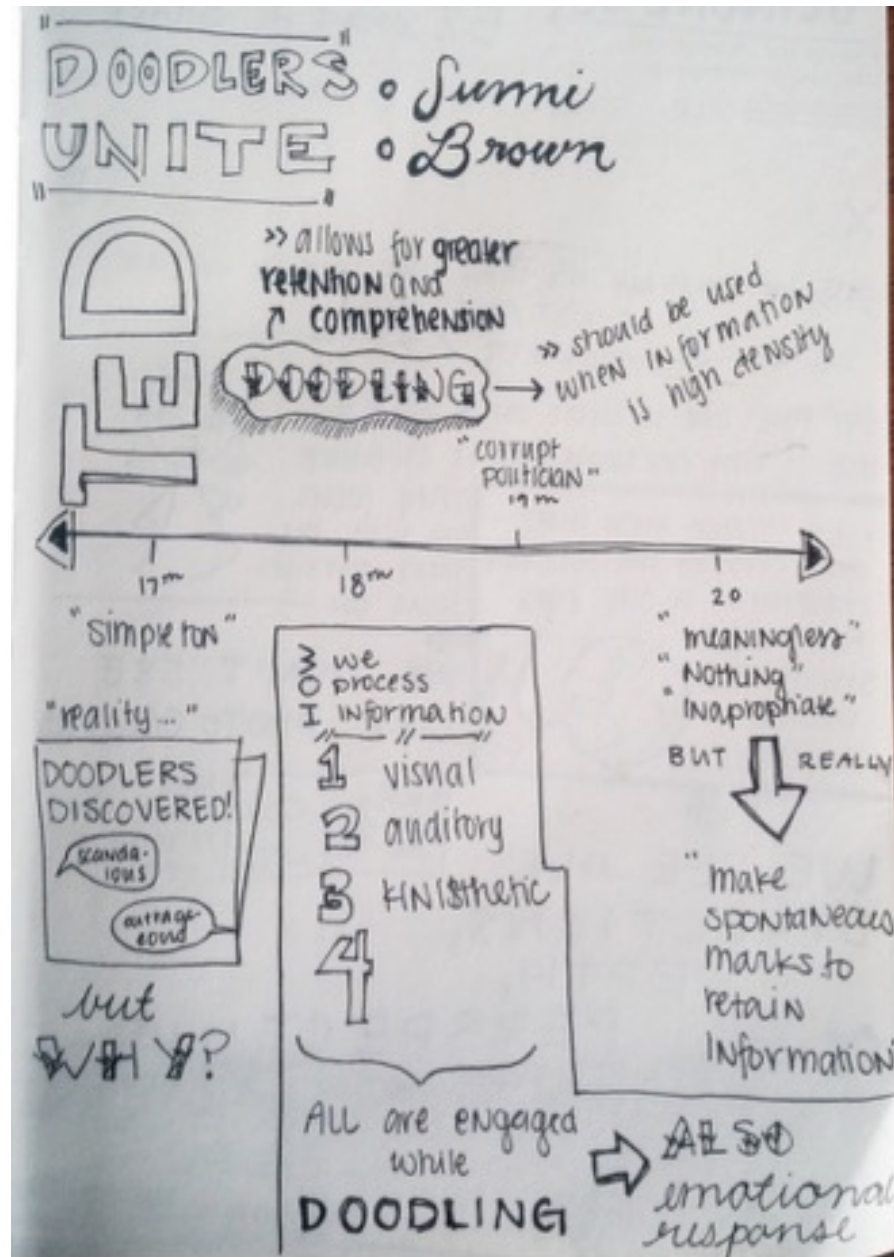 DOODLERS
UNITE
Sunni
Brown
TED
>> allows for greater
retention and
comprehension
DOODLING
>> should be used
when information
is high density
"corrupt
politician"
17m
18m
19m
20
"simpleton"
"meaningless"
"Nothing"
"Inapropriate"
BUT REALLY
"make
spontaneous
marks to
retain
information
"reality..."
DOODLERS
DISCOVERED!
scanda-
lous
outrage-
eous
but
WHY?
we
process
information
1 visual
2 auditory
3 kinisthetic
4
ALL are engaged
while
DOODLING
ALSO
emotional
response